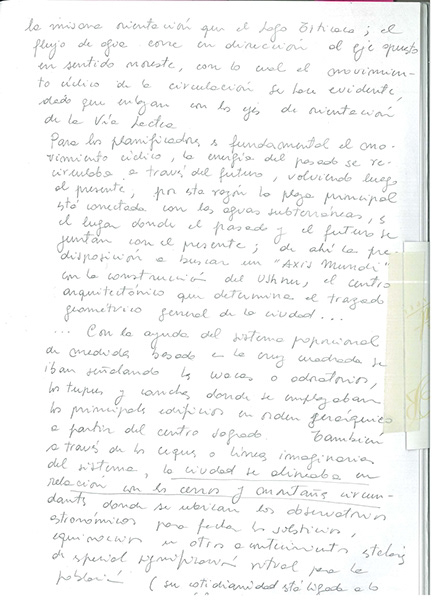 la misma orientación que el Lago Titicaca; el
flujo de agua corre en dirección al eje opuesto
en sentido noreste, con lo cual el movimien-
to cíclico de la circulación se hace evidente,
dado que encajan con los ejes de orientación
de la Vía Lactea
Para los planificadores es fundamental el mo-
vimiento cíclico, la energía del pasado se re-
circulaba a través del futuro, volviendo luego
al presente, por esta razón la plaza principal
está conectada con las aguas subterráneas, es
el lugar donde el pasado y el futuro se
juntan con el presente; de ahí la pre-
disposición a buscar un "Axis Mundi"
con la construcción del Ushnu, el centro
arquitectónico que determina el trazado
geométrico general de la ciudad...
... Con la ayuda del sistema proporcional
de medida basado en la cruz cuadrada se
iban señalando las wacas o adoratorios,
los tupus y canchas donde se emplazaban
los principales edificios en orden jerárquico
a partir del centro sagrado. También
a través de los ceques o líneas imaginarias
del sistema, la ciudad se alineaba en
relación con los cerros y montañas circun-
dantes donde se ubican los observatorios
astronómicos para fechar los solsticios,
equinoccios u otros acontecimientos estelares
de especial significación ritual para la
población (su cotidianidad está ligada a lo